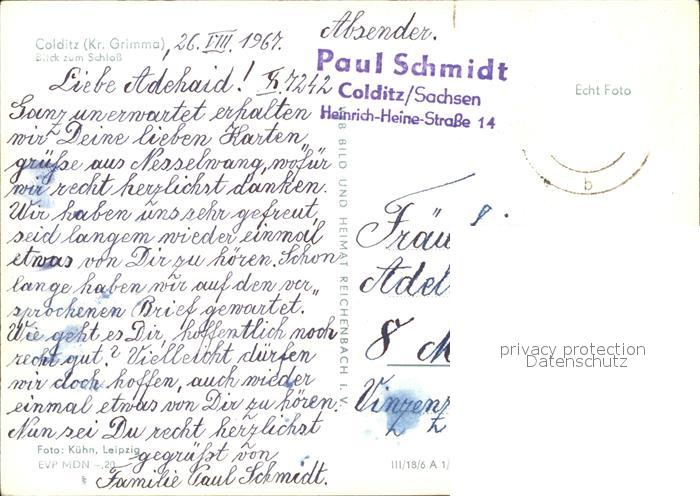 Colditz (Kr. Grimma), 26. VIII. 1967.
Blick zum Schloß
Absender.
Paul Schmidt
7242
Colditz/Sachsen
Heinrich-Heine-Straße 14
Echt Foto
b
Liebe Adehaid!
Ganz unerwartet erhalten
wir Deine lieben Karten„
grüße aus Nesselwang, wofür
wir recht herzlichst danken.
Wir haben uns sehr gefreut,
seid langem wieder einmal
etwas von Dir zu hören. Schon
lange haben wir auf den ver„
sprochenen Brief gewartet.
Wie geht es Dir, hoffentlich noch
recht gut? Vielleicht dürfen
wir doch hoffen, auch wieder
einmal etwas von Dir zu hören.
Nun sei Du recht herzlichst
gegrüßt von
Familie Paul Schmidt.
Foto: Kühn, Leipzig
EVP MDN –,20
BILD UND HEIMAT REICHENBACH i. V.
III/18/6 A 1/
Fräu
Adel
8
Vinzenz
privacy protection
Datenschutz